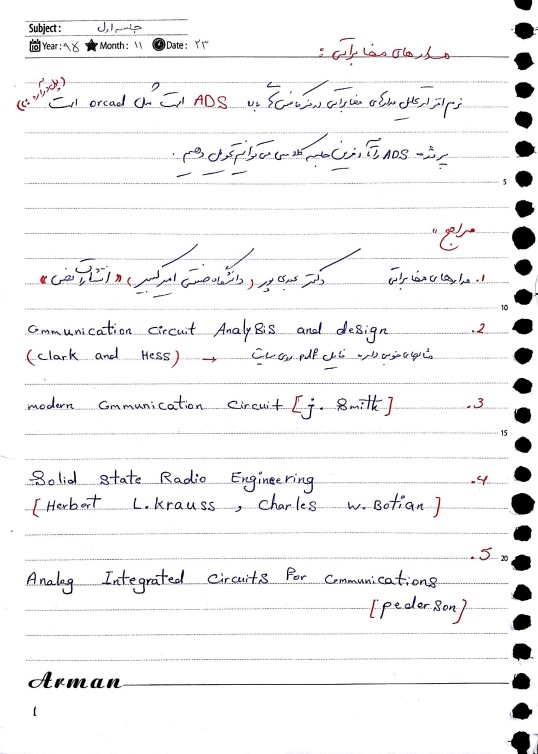 Subject: جلسه اول
Year: ۹۸ Month: ۱۱ Date: ۲۳
مدارهای مخابراتی :
نرم افزار تحلیل مدارهای مخابراتی در فرکانس های بالا ADS است مثل orcad است
پروژه ADS را تا آخرین جلسه کلاسی می توانیم تحویل دهیم .
5
مراجع "
۱. مدارهای مخابراتی دکتر عبدی پور (دانشگاه صنعتی امیرکبیر) « انتشارات نص »
10
Communication Circuit Analysis and design .2
(clark and Hess) → مثالهای خوبی دارد فایل pdf روی سایت
modern Communication Circuit [j. Smith] .3
15
Solid state Radio Engineering .4
[Herbert L. Krauss , Charles w. Botian]
.5 20
Analog Integrated Circuits for Communications
[pederson]
Arman
1